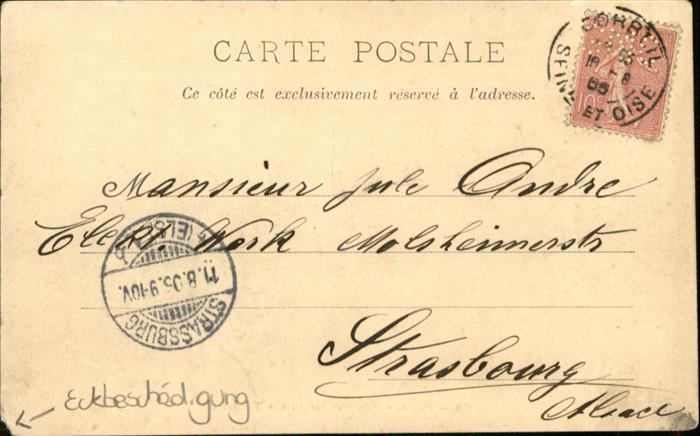 CARTE POSTALE
Ce côté est exclusivement réservé à l'adresse.
CORBEIL
SEINE ET OISE
Mansieur Jule Andre
Elekt. Work Molsheimerstr
STRASSBURG
11.8.05.9-10V.
Strasbourg
Alsace
Eckbeschädigung